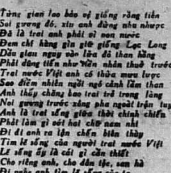 Từng gian lao bảo vệ giống rồng tiên
Soi gương đó, xin anh đừng nhu nhược
Đã là trai anh phải vì non nước
Đem chí hùng gìn giữ giống Lạc Long
Dẫu gian nguy vào lửa đỏ chẳng
Phải đứng tiến như văn nhân thuở trước
Trai nước Việt anh có thừa mưu lược
Sao điềm nhiên ngồi ngó cảnh lầm than
Anh thấy chăng bao trai trẻ trong làng
Noi gương trước xông pha ngoài trận
Anh là trai sống giữa thời chinh chiến
Phải làm gì nói hai chữ nam nhi
Đi đi anh ra tận chốn biên thùy
Tìm lẽ sống của người trai nước Việt
Lẽ sống ấy là cái gì cần thiết
Cho riêng anh, cho dân tộc, sơn hà
Đi nghe anh tìm lẽ sống